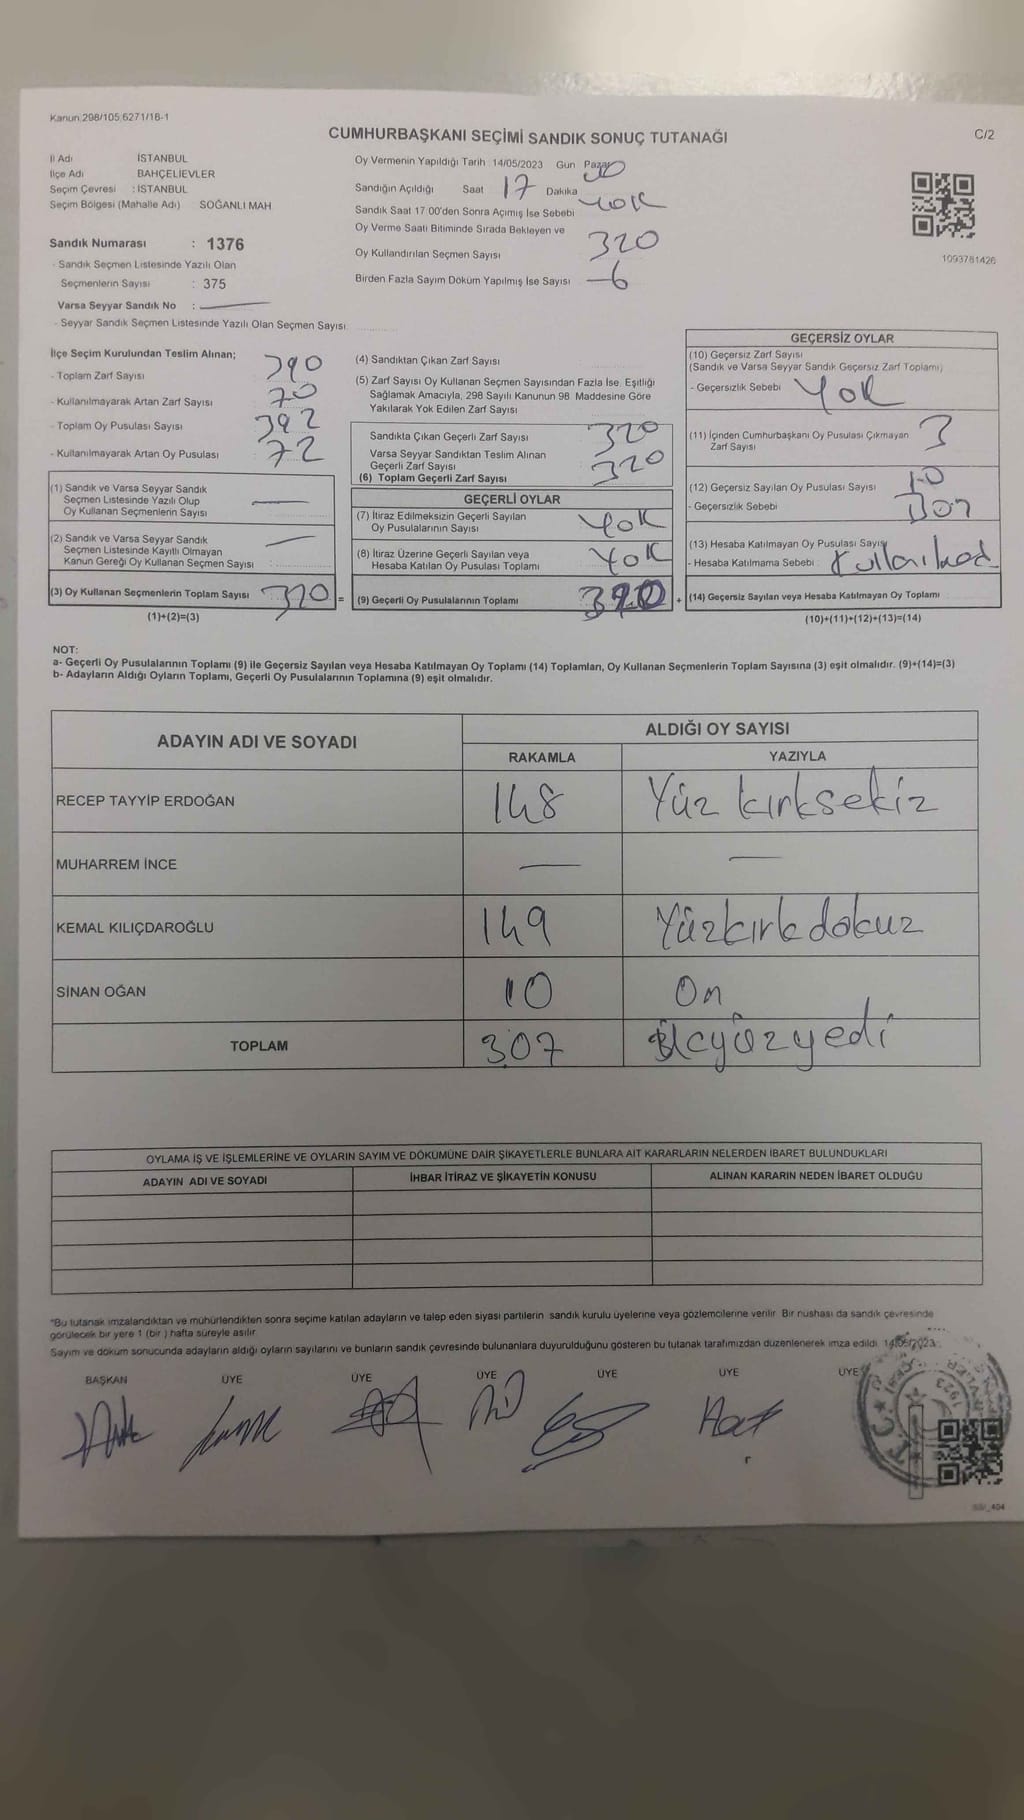 Kanun:298/105;6271/18-1
CUMHURBAŞKANI SEÇİMİ SANDIK SONUÇ TUTANAĞI
C/2
İl Adı İSTANBUL
İlçe Adı BAHÇELİEVLER
Seçim Çevresi : İSTANBUL
Seçim Bölgesi (Mahalle Adı) SOĞANLI MAH
Sandık Numarası : 1376
- Sandık Seçmen Listesinde Yazılı Olan
Seçmenlerin Sayısı : 375
Varsa Seyyar Sandık No :
- Seyyar Sandık Seçmen Listesinde Yazılı Olan Seçmen Sayısı:
Oy Vermenin Yapıldığı Tarih :14/05/2023 Gün Pazar
Sandığın Açıldığı Saat 17 Dakika
Sandık Saat 17:00'den Sonra Açımış İse Sebebi YOK
Oy Verme Saati Bitiminde Sırada Bekleyen ve
Oy Kullandırılan Seçmen Sayısı 320
Birden Fazla Sayım Döküm Yapılmış İse Sayısı 6
1093781426
İlçe Seçim Kurulundan Teslim Alınan;
- Toplam Zarf Sayısı 390
- Kullanılmayarak Artan Zarf Sayısı 70
- Toplam Oy Pusulası Sayısı 392
- Kullanılmayarak Artan Oy Pusulası 72
(1) Sandık ve Varsa Seyyar Sandık
Seçmen Listesinde Yazılı Olup
Oy Kullanan Seçmenlerin Sayısı
(2) Sandık ve Varsa Seyyar Sandık
Seçmen Listesinde Kayıtlı Olmayan
Kanun Gereği Oy Kullanan Seçmen Sayısı
(3) Oy Kullanan Seçmenlerin Toplam Sayısı 320 =
(1)+(2)=(3)
(4) Sandıktan Çıkan Zarf Sayısı
(5) Zarf Sayısı Oy Kullanan Seçmen Sayısından Fazla İse. Eşitliği
Sağlamak Amacıyla, 298 Sayılı Kanunun 98. Maddesine Göre
Yakılarak Yok Edilen Zarf Sayısı
Sandıkta Çıkan Geçerli Zarf Sayısı 320
Varsa Seyyar Sandıktan Teslim Alınan
Geçerli Zarf Sayısı 320
(6) Toplam Geçerli Zarf Sayısı
GEÇERLİ OYLAR
(7) İtiraz Edilmeksizin Geçerli Sayılan
Oy Pusulalarının Sayısı YOK
(8) İtiraz Üzerine Geçerli Sayılan veya
Hesaba Katılan Oy Pusulası Toplamı YOK
(9) Geçerli Oy Pusulalarının Toplamı +
GEÇERSİZ OYLAR
(10) Geçersiz Zarf Sayısı
(Sandık ve Varsa Seyyar Sandık Geçersiz Zarf Toplamı)
- Geçersizlik Sebebi YOK
(11) İçinden Cumhurbaşkanı Oy Pusulası Çıkmayan
Zarf Sayısı 3
(12) Geçersiz Sayılan Oy Pusulası Sayısı 10
- Geçersizlik Sebebi
(13) Hesaba Katılmayan Oy Pusulası Sayısı
- Hesaba Katılmama Sebebi :
(14) Geçersiz Sayılan veya Hesaba Katılmayan Oy Toplamı
(10)+(11)+(12)+(13)=(14)
NOT:
a- Geçerli Oy Pusulalarının Toplamı (9) ile Geçersiz Sayılan veya Hesaba Katılmayan Oy Toplamı (14) Toplamları, Oy Kullanan Seçmenlerin Toplam Sayısına (3) eşit olmalıdır. (9)+(14)=(3)
b- Adayların Aldığı Oyların Toplamı, Geçerli Oy Pusulalarının Toplamına (9) eşit olmalıdır.
ADAYIN ADI VE SOYADI ALDIĞI OY SAYISI
RAKAMLA YAZIYLA
RECEP TAYYİP ERDOĞAN 148 Yüz kırksekiz
MUHARREM İNCE
KEMAL KILIÇDAROĞLU 149 Yüzkırk dokuz
SİNAN OĞAN 10 On
TOPLAM 307 Üçyüzyedi
OYLAMA İŞ VE İŞLEMLERİNE VE OYLARIN SAYIM VE DÖKÜMÜNE DAİR ŞİKAYETLERLE BUNLARA AİT KARARLARIN NELERDEN İBARET BULUNDUKLARI
ADAYIN ADI VE SOYADI İHBAR İTİRAZ VE ŞİKAYETİN KONUSU ALINAN KARARIN NEDEN İBARET OLDUĞU
*Bu tutanak imzalandıktan ve mühürlendikten sonra seçime katılan adayların ve talep eden siyasi partilerin sandık kurulu üyelerine veya gözlemcilerine verilir. Bir nushası da sandık çevresinde
görülecek bir yere 1 (bir ) hafta süreyle asılır.
Sayım ve döküm sonucunda adayların aldığı oyların sayılarını ve bunların sandık çevresinde bulunanlara duyurulduğunu gösteren bu tutanak tarafımızdan düzenlenerek imza edildi. 14/05/2023
BAŞKAN ÜYE ÜYE ÜYE ÜYE ÜYE ÜYE
T.C.
1923